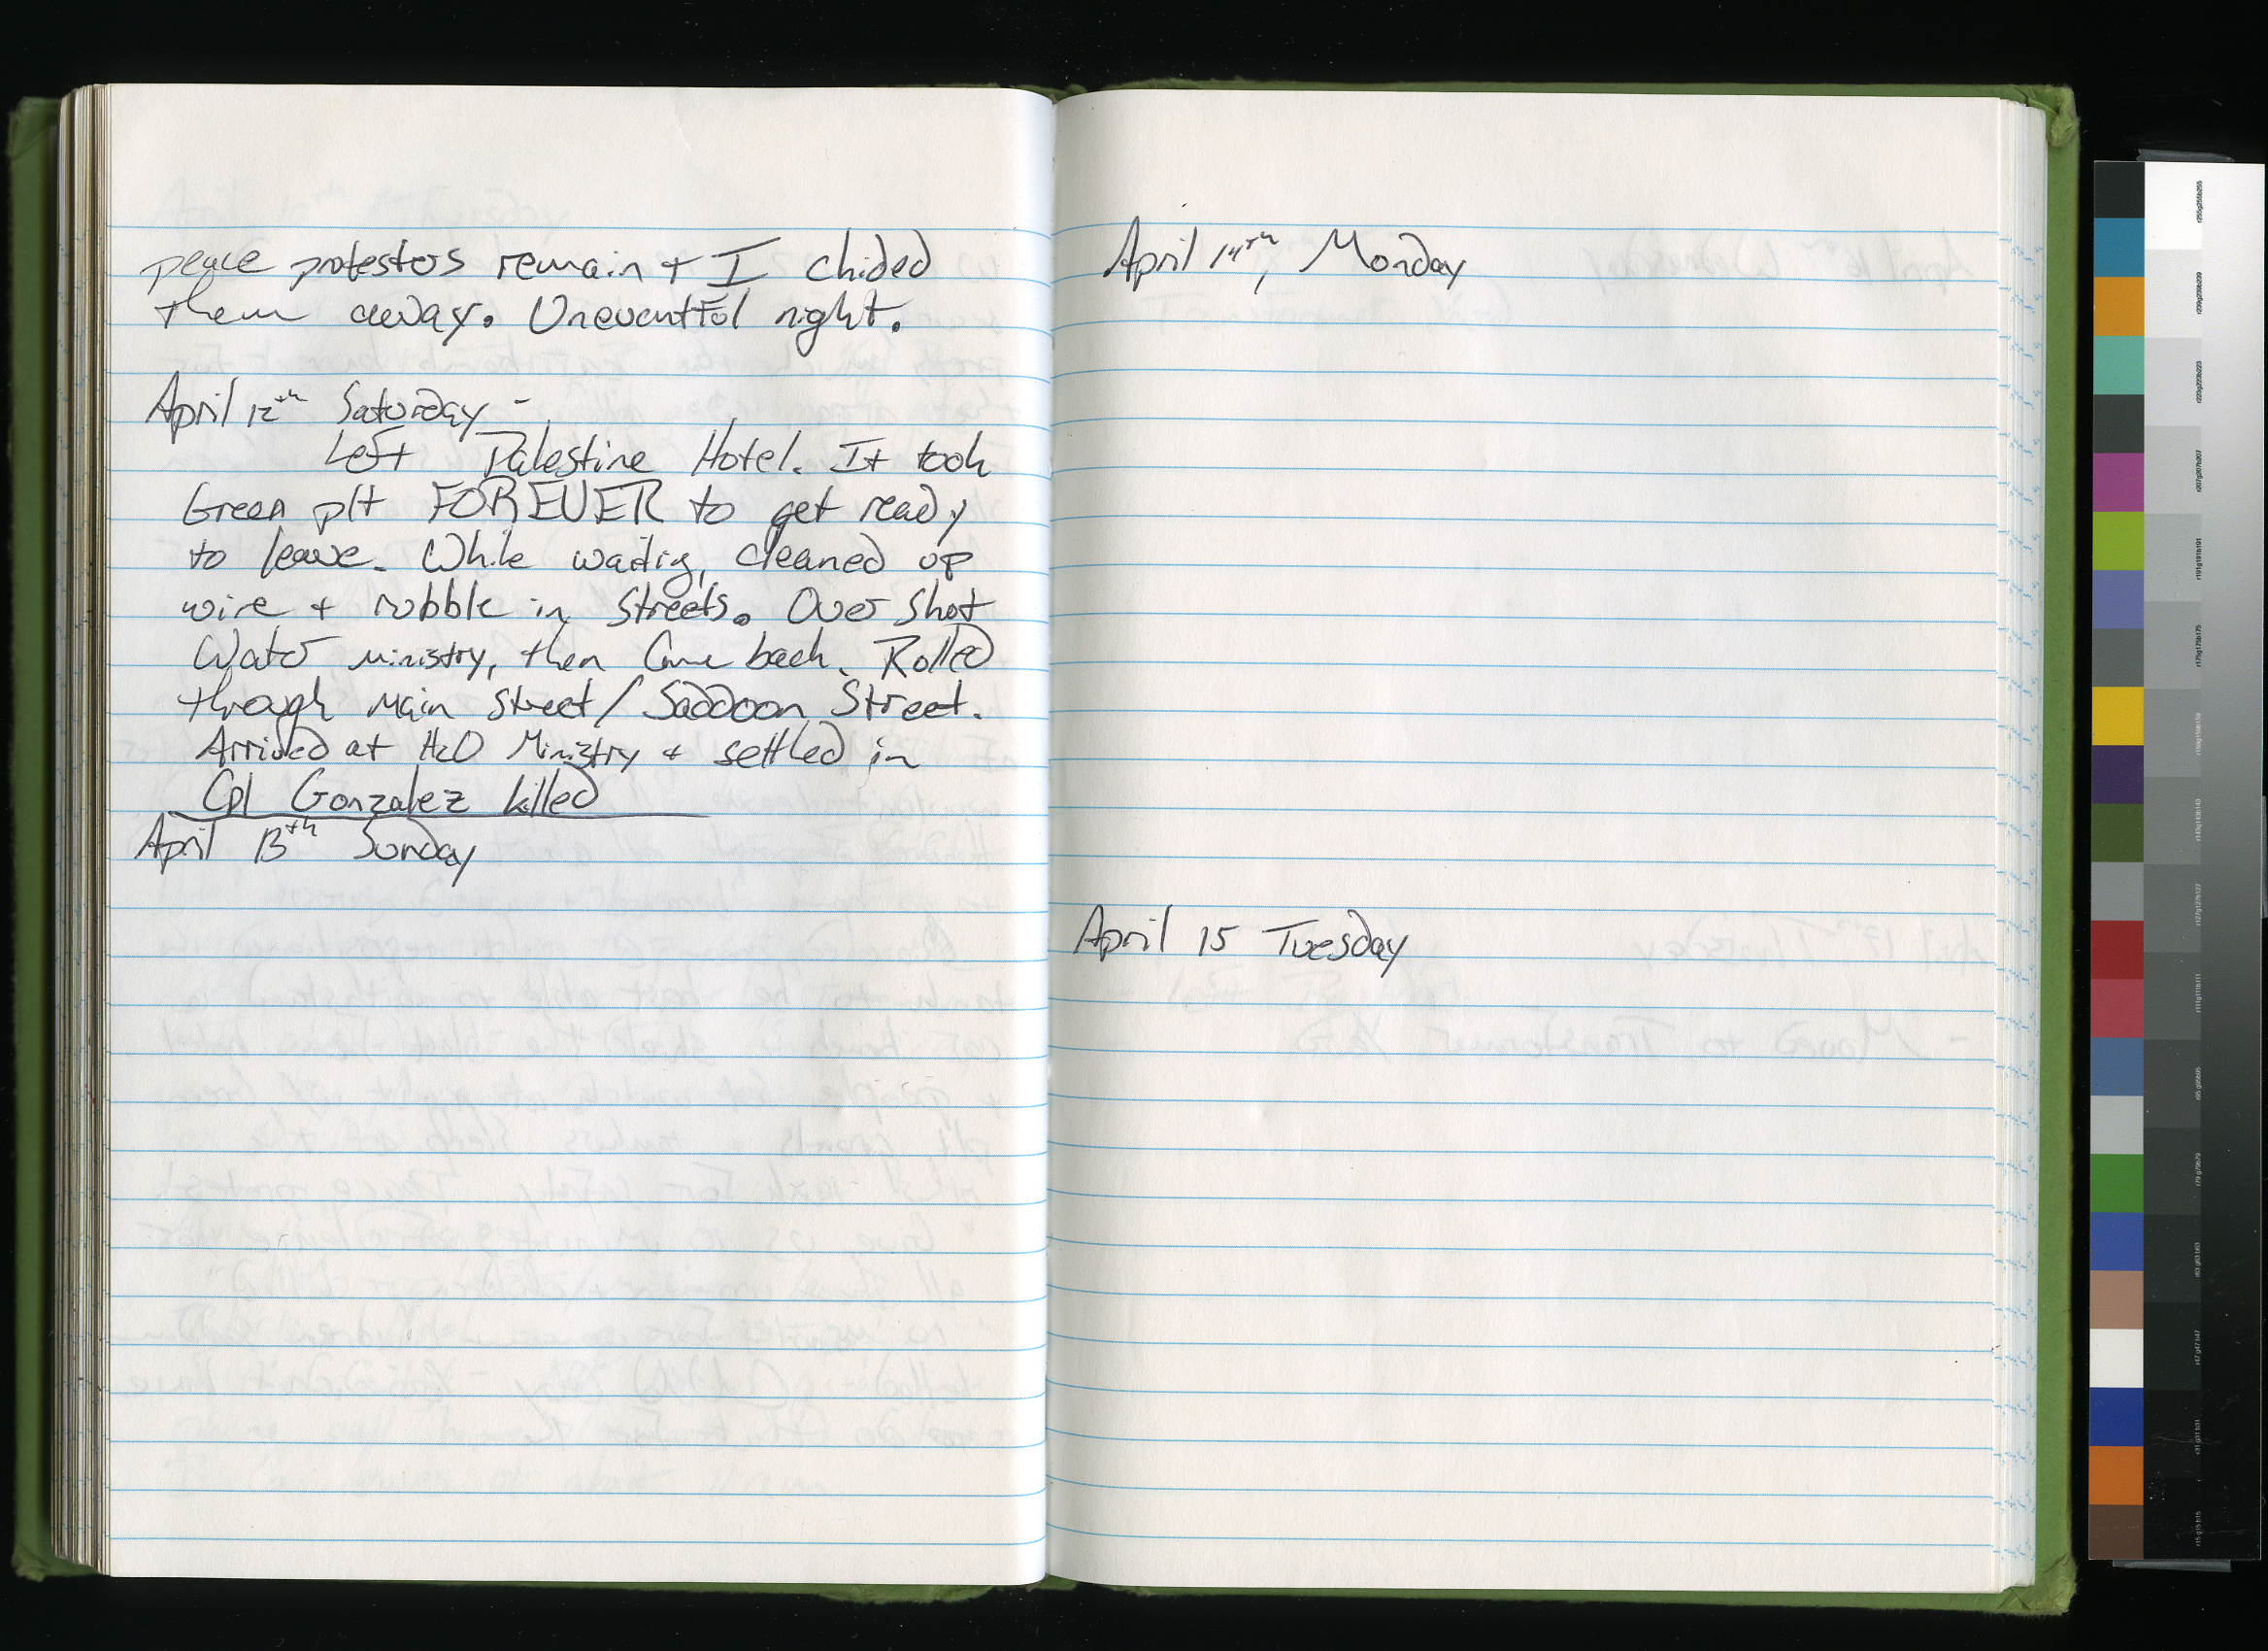 peace protesters remain + I chided
them away. Uneventful night.
April 12th Saturday -
Left Palestine Hotel. It took
Green plt FOREVER to get ready
to leave. While waiting, cleaned up
wire + rubble in streets. Over shot
Water Ministry, then came back. Rolled
through Main Street/Saddoon Street.
Arrived at H2O Ministry + settled in
Cpl Gonzalez killed
April 13th Sunday
April 14th, Monday
April 15 Tuesday